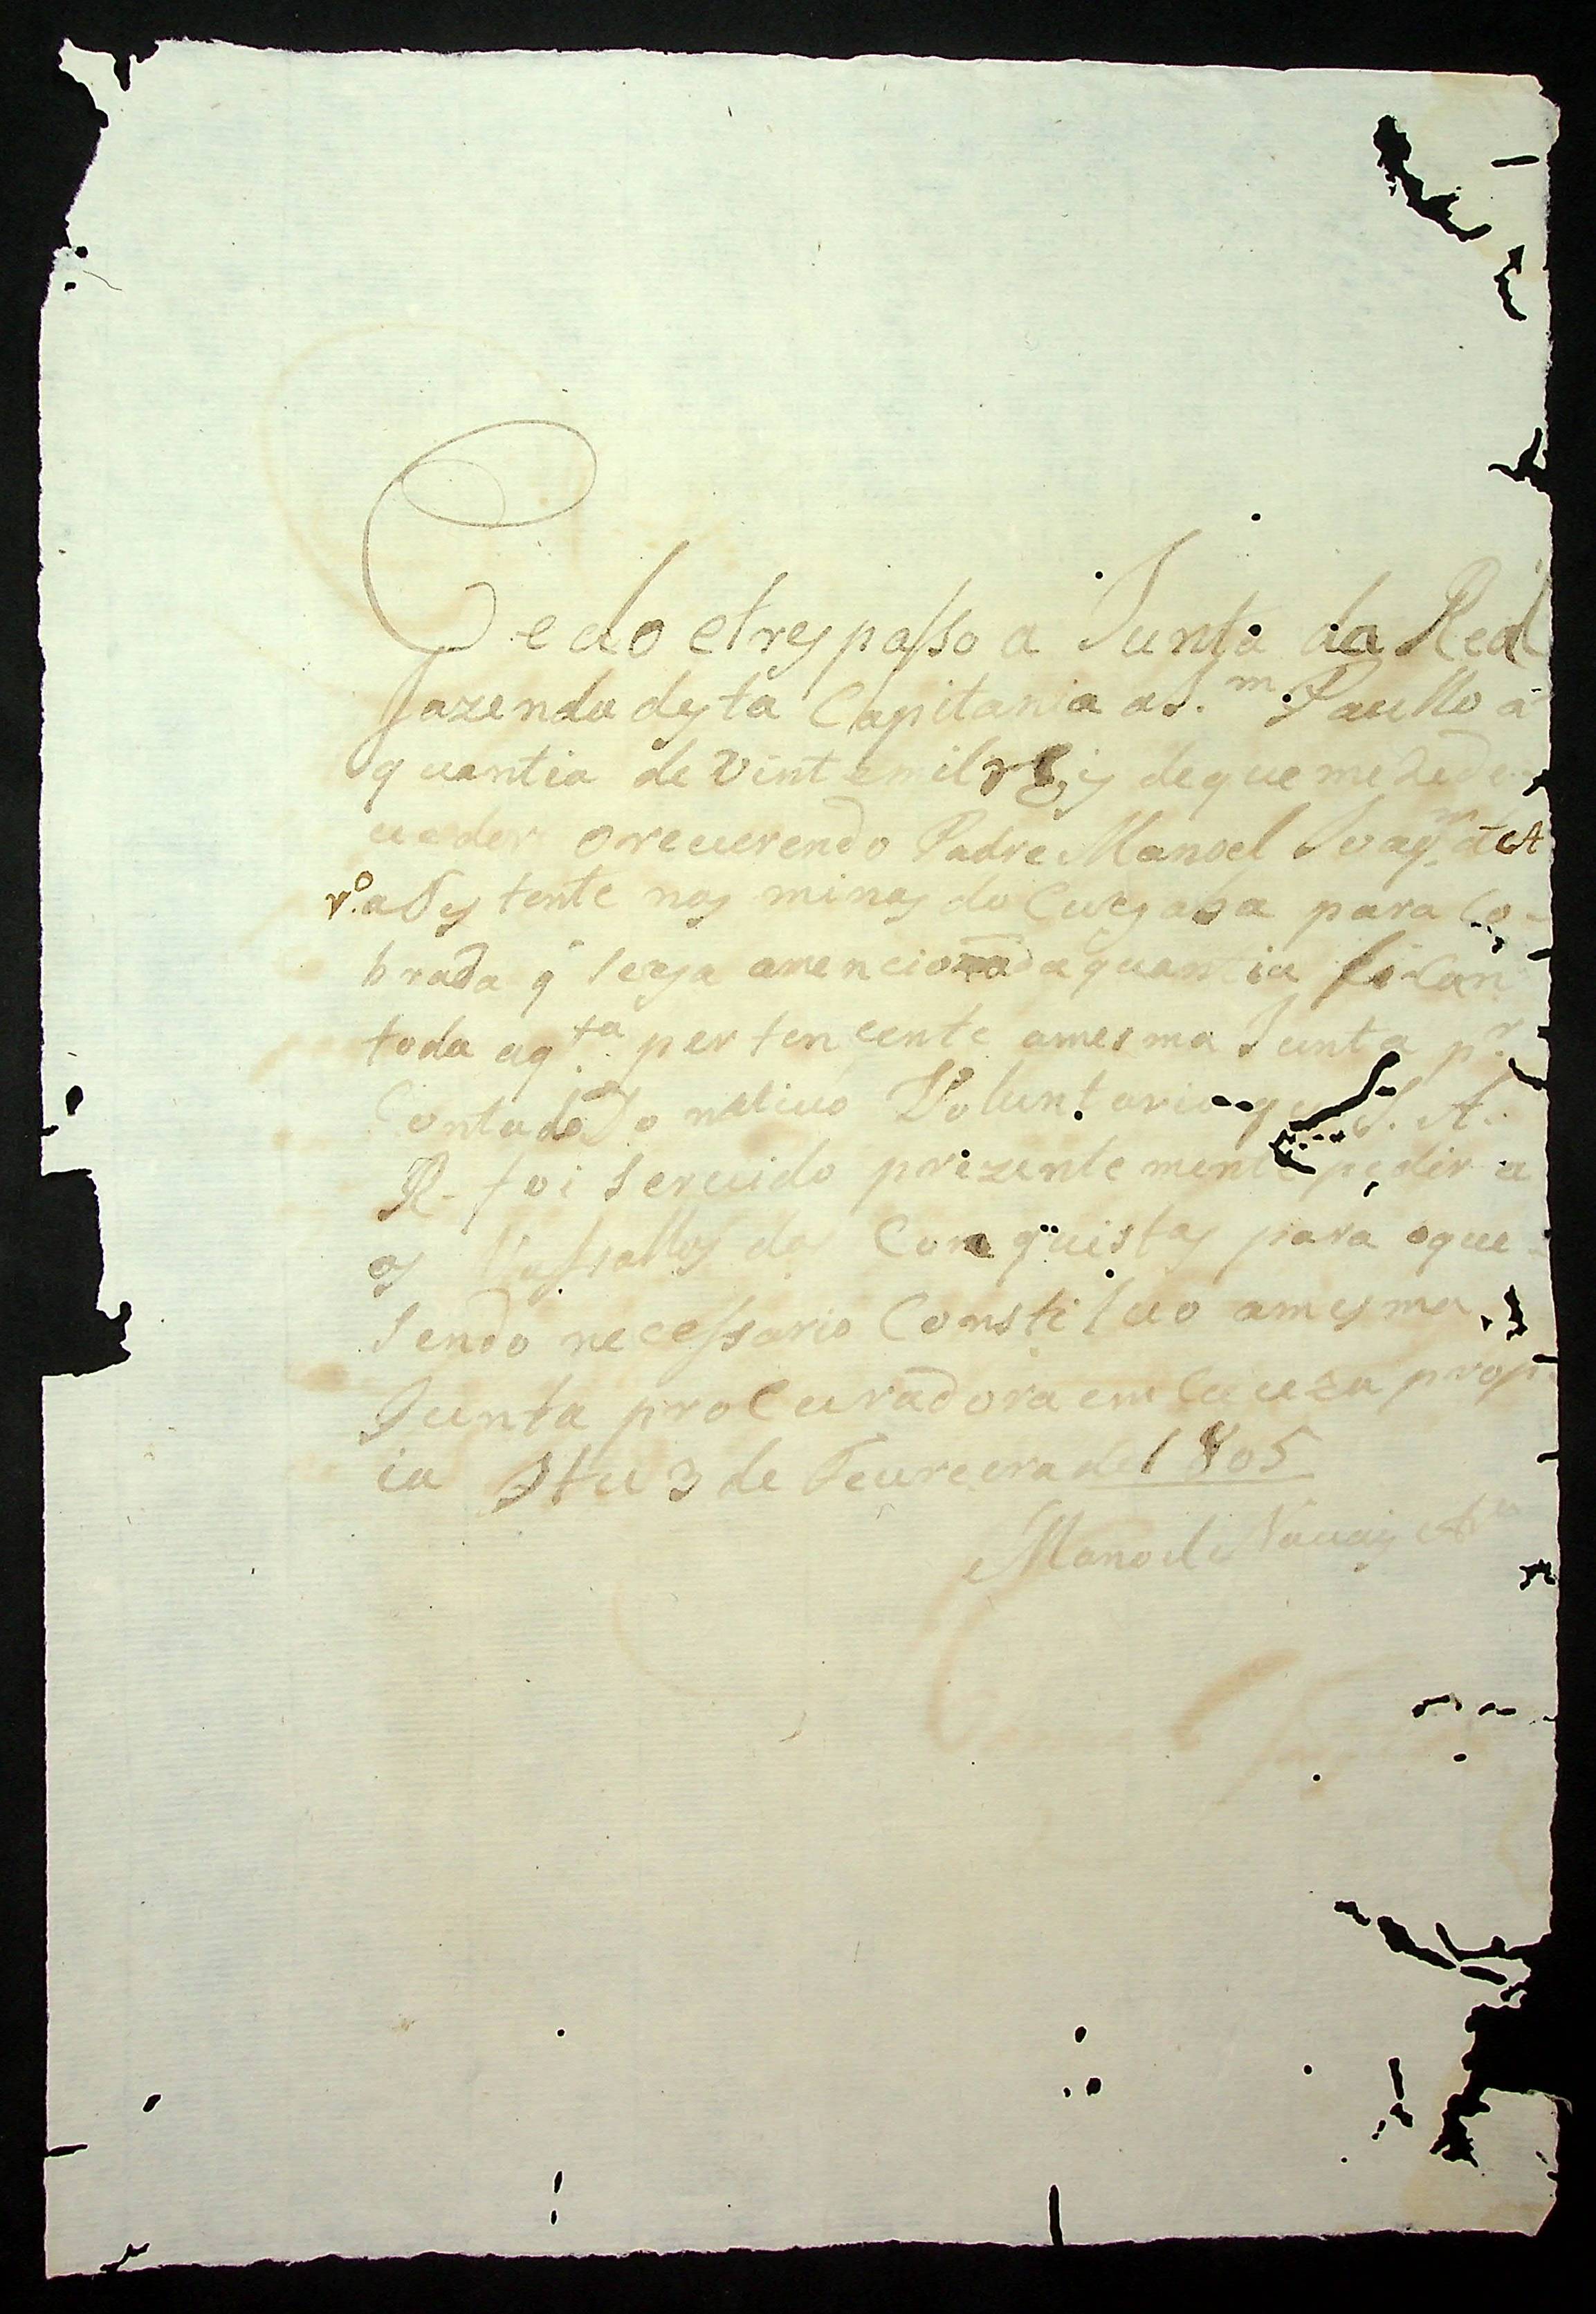 Cedo etrespasso a Junta da Real
fazenda desta Capitania aS.m Paullo a
quantia de Vintemil reis deque me Dede
uedor o reuerendo Padre Manoel Joaqm
aSestente nas minas do Cuegaba para Co-
brada q̃ seya amencionada quantia fican
toda aq.ta pertencente amesma Junta p.r
Conta do Donatiuo Voluntario que S. A.
R. foi Seruido prezentemente pedir a
os Vassallos das Conquistas para oque
Sendo necessario Constituo amesma
Junta procuradora em Cauza prop
ia Itu 3 de Feureerade 1805
Manoel Nauais